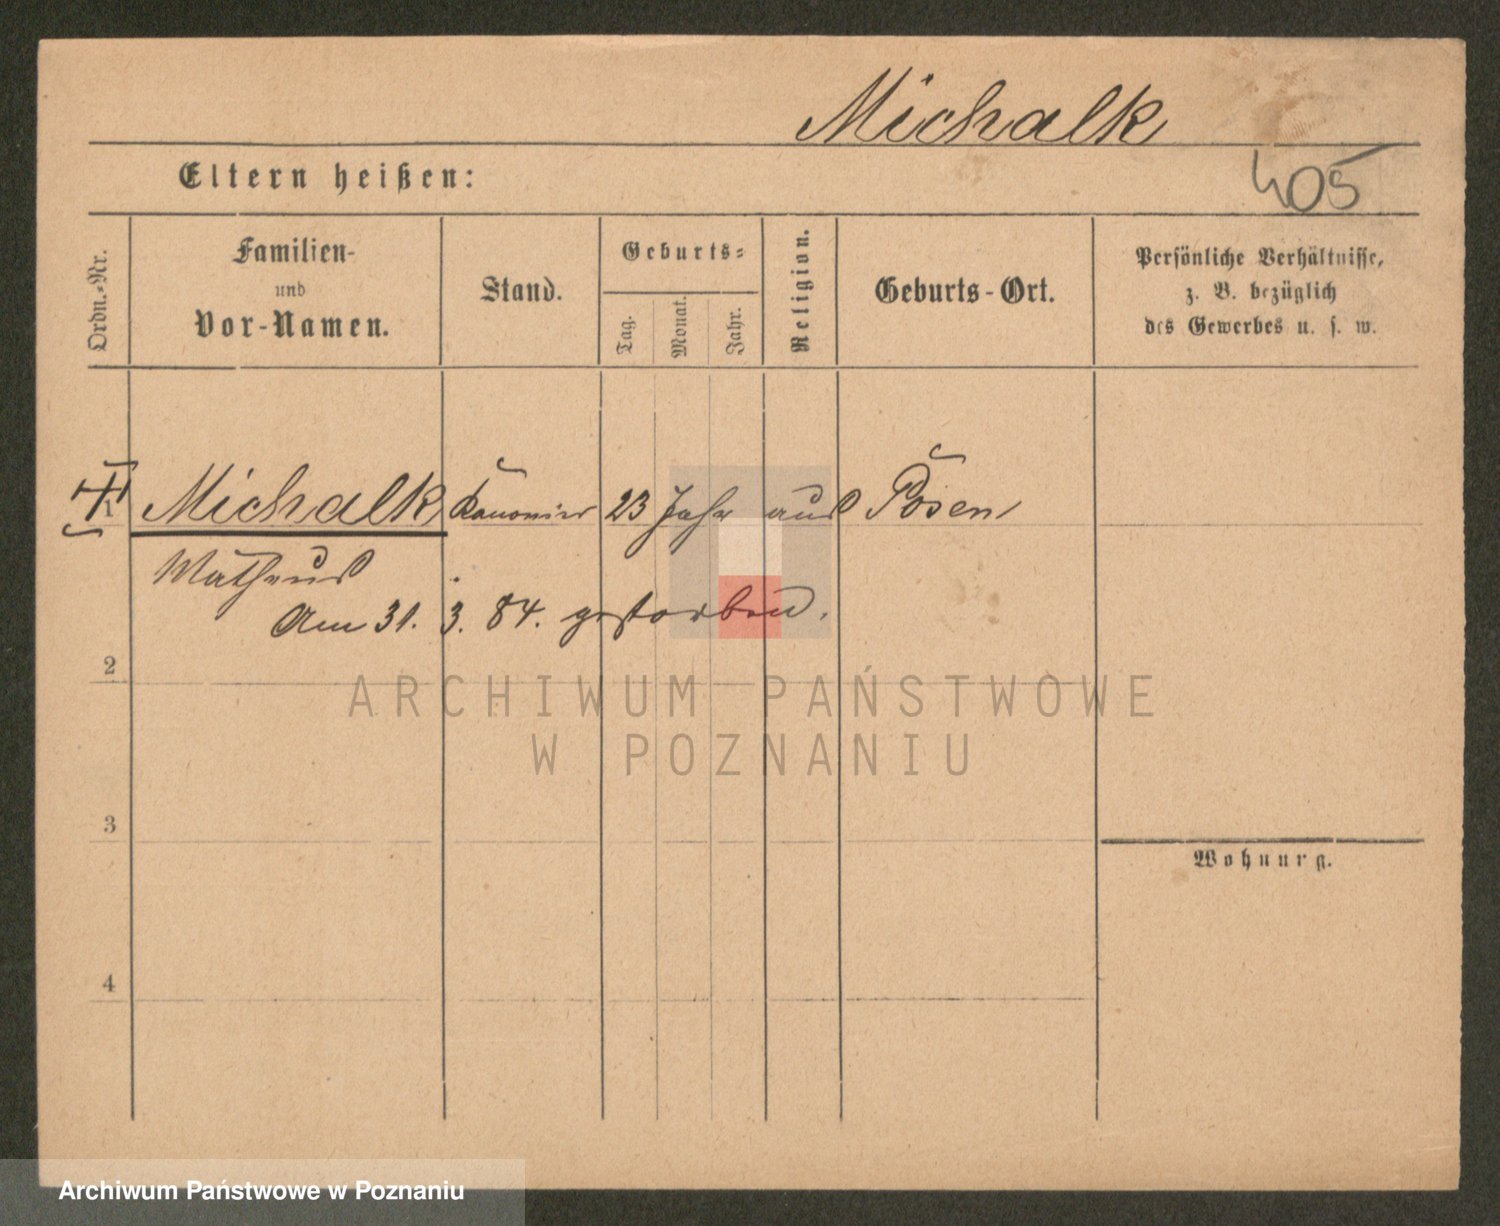 Michalk
Eltern heißen:
405
Ordn.-Nr.
Familien-
und
Vor-Namen.
Stand.
Geburts-
Tag.
Monat.
Jahr.
Religion.
Geburts-Ort.
Persönliche Verhältnisse,
z. B. bezüglich
des Gewerbes u. s. w.
Michalk Kanonier 23 Jahr aus Posen
Matheus
Am 31. 3. 84. gestorben.
2
ARCHIWUM PAŃSTWOWE
W POZNANIU
3
Wohnung.
4
Archiwum Państwowe w Poznaniu